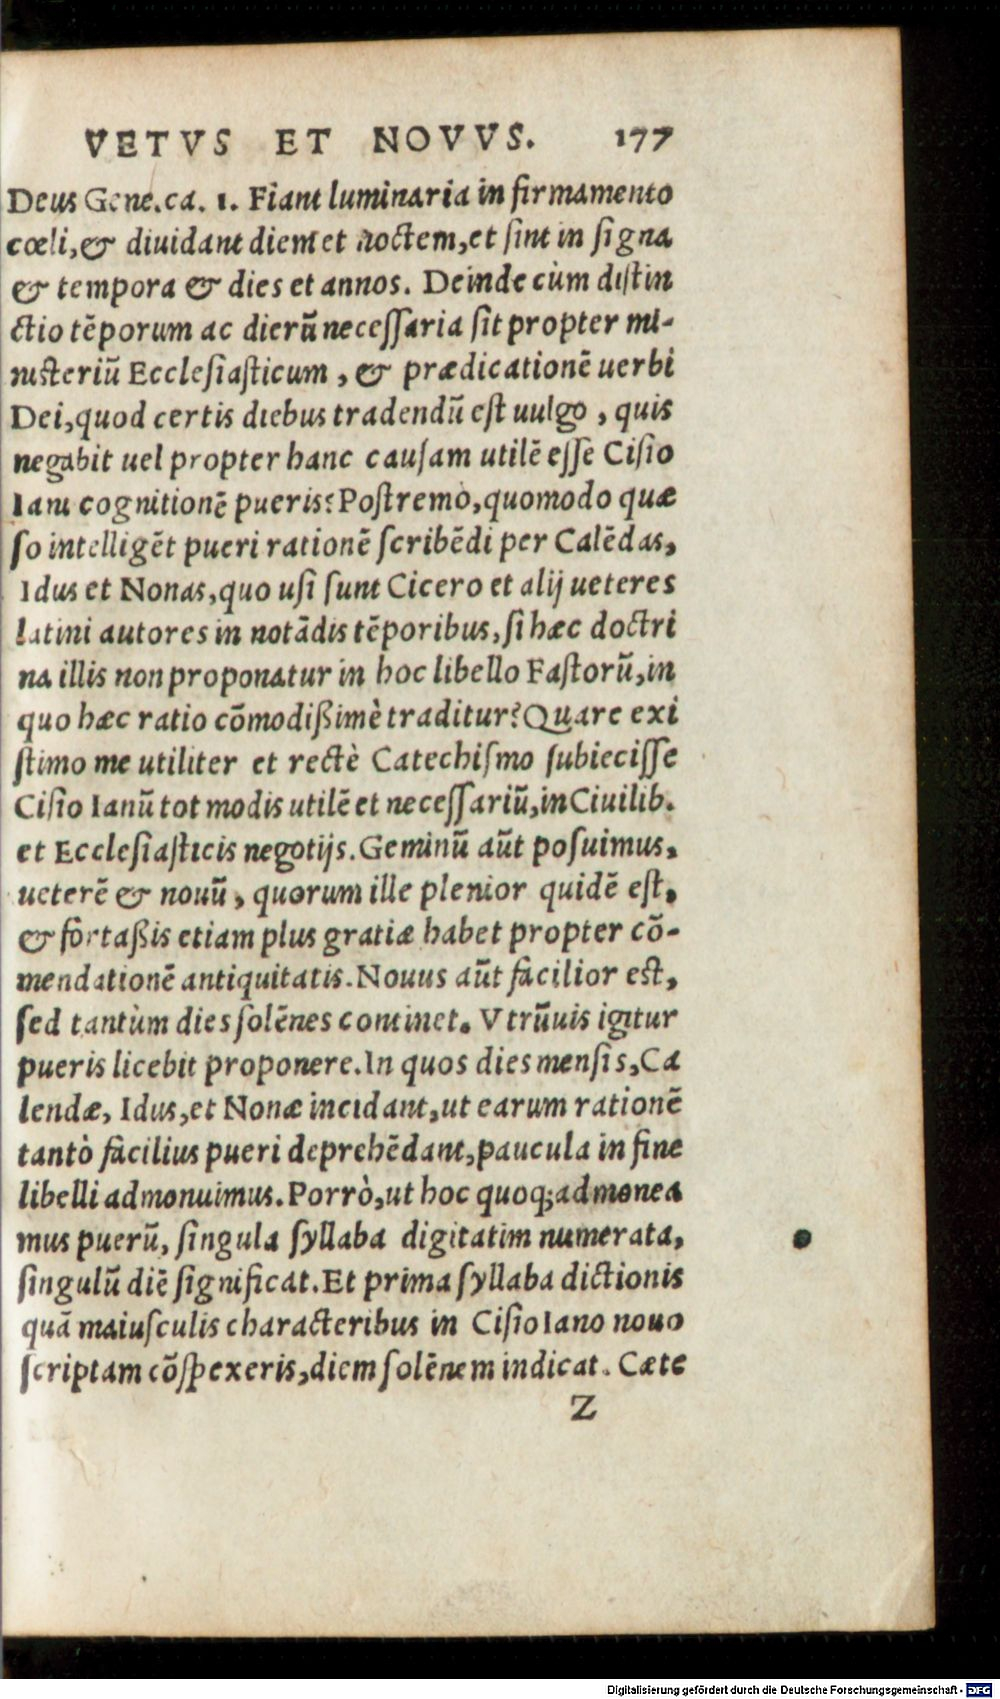 VETVS ET NOVVS. 177
Deus Gene.ca. 1. Fiant luminaria in firmamento
cœli,& diuidant diem et noctem,et sint in signa
& tempora & dies et annos. Deinde cùm distin
ctio tēporum ac dierū necessaria sit propter mi-
nisteriū Ecclesiasticum , & prædicationē uerbi
Dei,quod certis diebus tradendū est uulgo , quis
negabit uel propter hanc causam utilē esse Cisio
Iani cognitionē pueris? Postremò,quomodo quæ
so intelligēt pueri rationē scribēdi per Calēdas,
Idus et Nonas,quo usi sunt Cicero et alij ueteres
latini autores in notādis tēporibus,si hæc doctri
na illis non proponatur in hoc libello Fastorū,in
quo hæc ratio cōmodißimè traditur? Quare exi
stimo me utiliter et rectè Catechismo subiecisse
Cisio Ianū tot modis utilē et necessariū,in Ciuilib.
et Ecclesiasticis negotijs. Geminū aūt posuimus,
ueterē & nouū , quorum ille plenior quidē est,
& fortaßis etiam plus gratiæ habet propter cō-
mendationē antiquitatis. Nouus aūt facilior est,
sed tantùm dies solēnes continet. Vtrūuis igitur
pueris licebit proponere. In quos dies mensis, Ca
lendæ, Idus,et Nonæ incidant,ut earum rationē
tantò facilius pueri deprehēdant,paucula in fine
libelli admonuimus. Porrò,ut hoc quoq; admonea
mus puerū, singula syllaba digitatim numerata,
singulū diē significat. Et prima syllaba dictionis
quā maiusculis characteribus in Cisio Iano nouo
scriptam cōspexeris,diem solēnem indicat. Cæte
Z
Digitalisierung gefördert durch die Deutsche Forschungsgemeinschaft - DFG